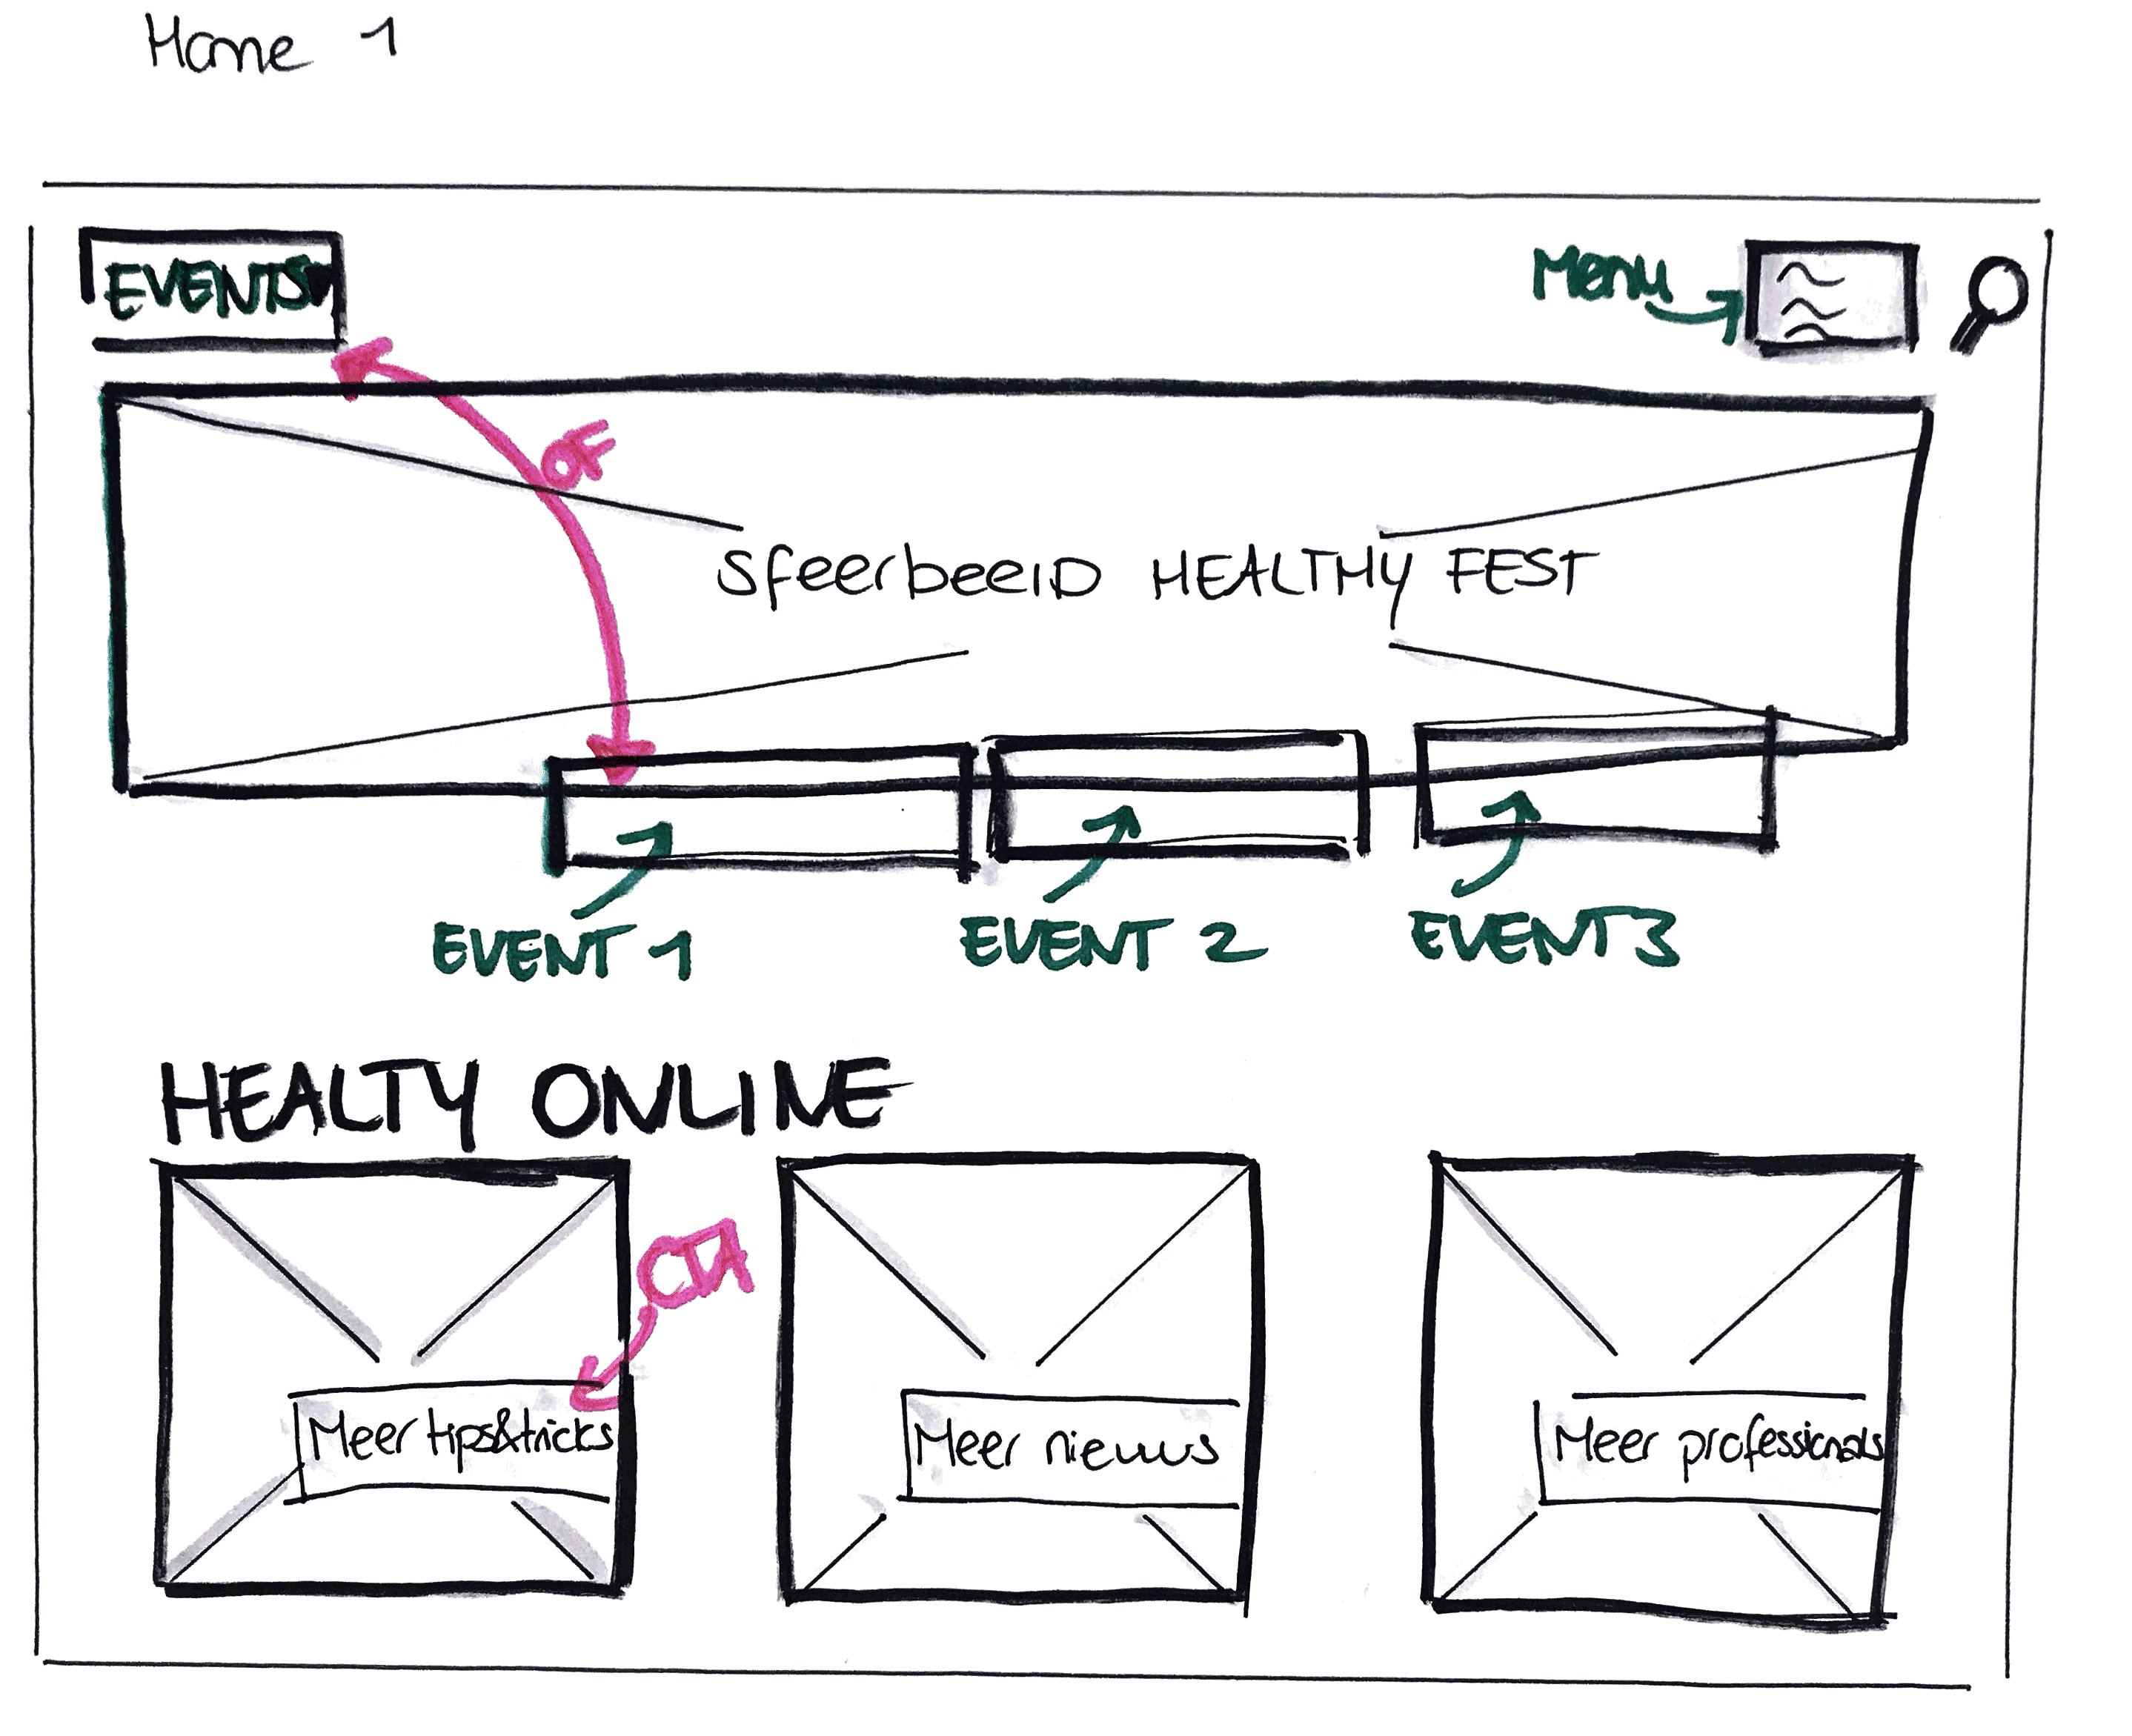 Home 1
EVENTS
Menu
OF
sfeerbeeld HEALTHY FEST
EVENT 1
EVENT 2
EVENT 3
HEALTY ONLINE
CTA
Meer tips&tricks
Meer nieuws
Meer professionals